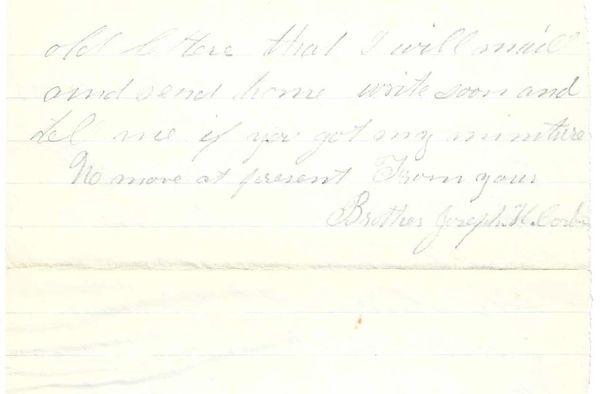 old lettere that I will mail
and send home write soon and
tel me if you got my miniture
No more at present From your
Brother Joseph. H. Corbe